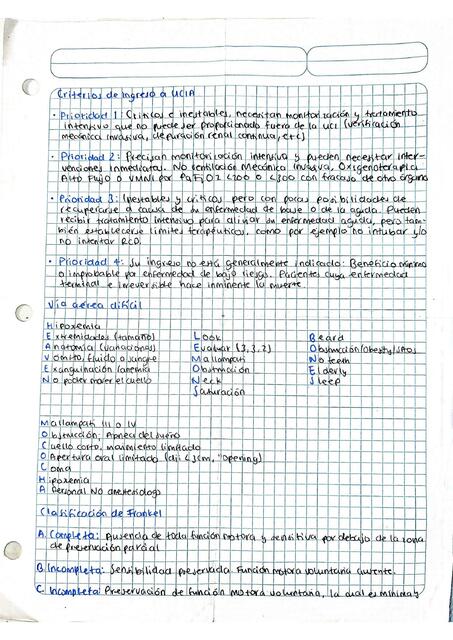 Criterios de ingreso a UCIA
· Prioridad 1: Críticos e inestables, necesitan monitorización y tratamiento
intensivo que no puede ser proporcionado fuera de la UCI (verificación
mecánica invasiva, depuración renal continua, etc)
· Prioridad 2: Precisan monitorización intensiva y pueden necesitar inter-
venciones inmediatas. No ventilación Mecánica Invasiva, Oxigenoterapia
Alto Flujo o VMNI por PaFiO2 <200 o <300 con fracaso de otro órgano
· Prioridad 3: Inestables y críticos pero con pocas posibilidades de
recuperarse a causa de su enfermedad de base o de la aguda. Pueden
recibir tratamiento intensivo para aliviar su enfermedad aguda, pero tam-
bién establecerse límites terapéuticos, como por ejemplo no intubar y/o
no intentar RCP.
· Prioridad 4: Su ingreso no está generalmente indicado: Beneficio mínimo
o improbable por enfermedad de bajo riesgo. Pacientes cuya enfermedad
terminal e irreversible hace inminente la muerte.
Vía aérea difícil
Hipoxemia
Extremidades (tamaño)
Anatomía (variaciones)
Vómito, fluido o sangre
Exanguinación (anemia
No poder mover el cuello
Look
Evaluar (3,3,2)
Mallampati
Obstrucción
Neck
Saturación
Beard
Obstrucción/Obesity/SAOS
No teeth
Elderly
Sleep
Mallampati III o IV
Obstrucción, Apnea del sueño
Cuello corto, movimiento limitado
Apertura oral limitado (di <3cm, "Opening)
Coma
Hipoxemia
Personal No anestesiologo
Clasificación de Frankel
A. Completa: Ausencia de toda función motora y sensitiva por debajo de la zona
de preservación parcial
B. Incompleta: Sensibilidad preservada. Función motora voluntaria ausente.
C. Incompleta: Preservación de función motora voluntaria, la cual es mínima y